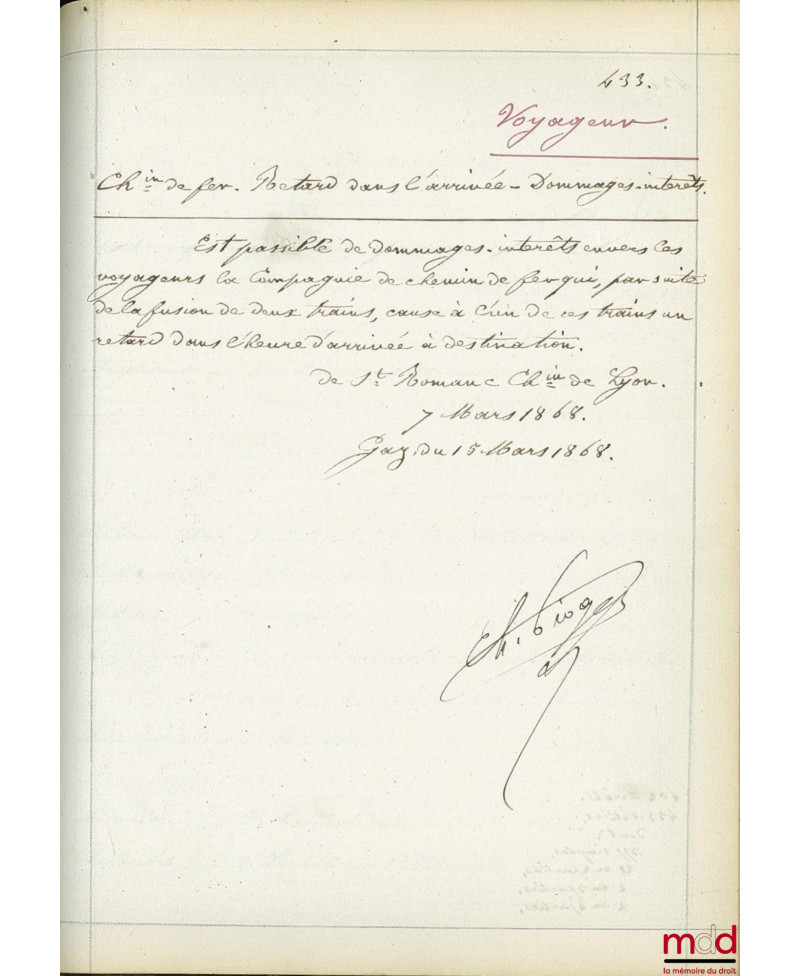 433.
Voyageur.
Ch.in de fer. Retard dans l'arrivée - Dommages-interêts.
Est passible de dommages-interêts envers les
voyageurs la Compagnie de chemin de fer qui, par suite
de la fusion de deux trains, cause à l'un de ces trains un
retard dans l'heure d'arrivée à destination.
de St. Roman c Ch.in de Lyon.
7 Mars 1868.
Gaz. du 15 Mars 1868.
Ch.
mdd
la mémoire du droit